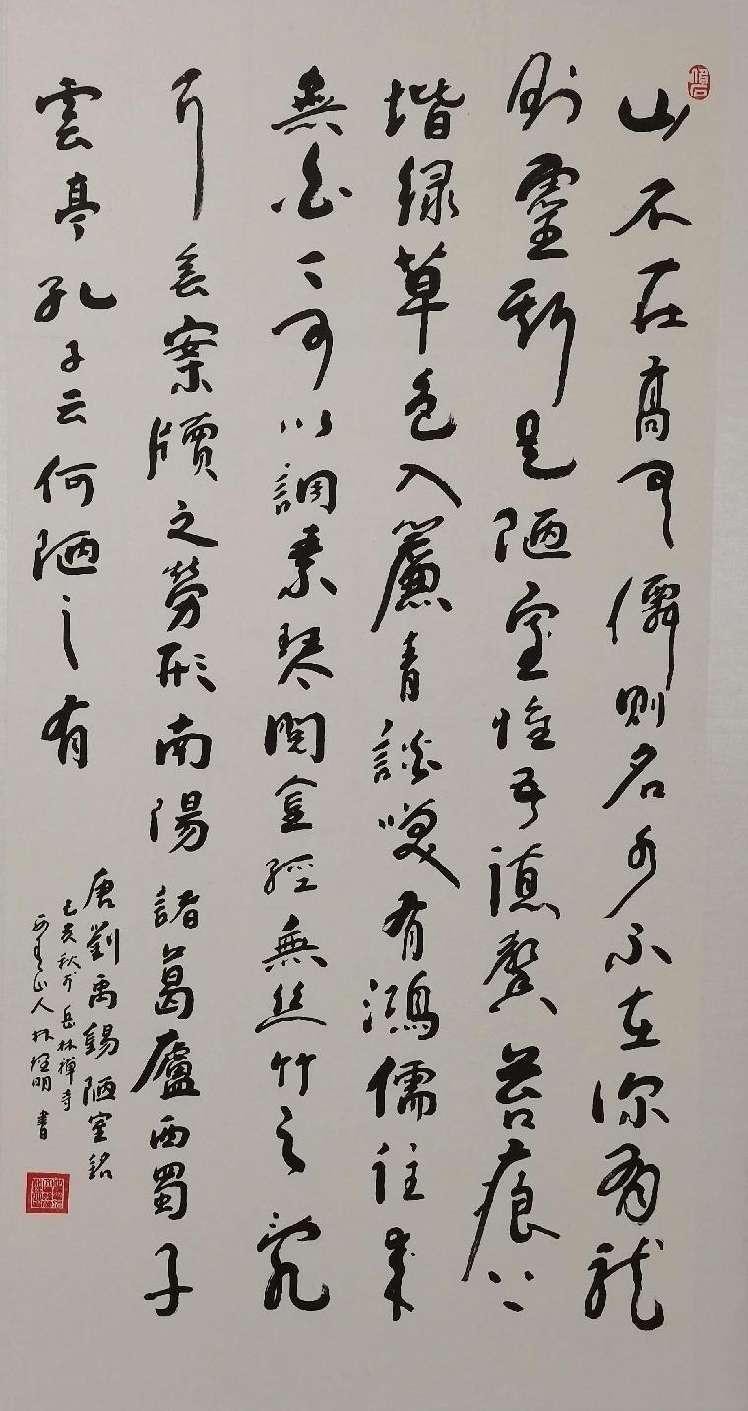 山不在高有僊则名水不在深有龍
則靈斯是陋室惟吾德馨苔痕上
堦緑草色入簾青談笑有鴻儒往来
無白丁可以調素琴閱金經無丝竹之亂
耳無案牘之勞形南陽諸葛廬西蜀子
雲亭孔子云何陋之有
唐劉禹錫陋室銘
己亥秋於岳林禪寺
山人林明書